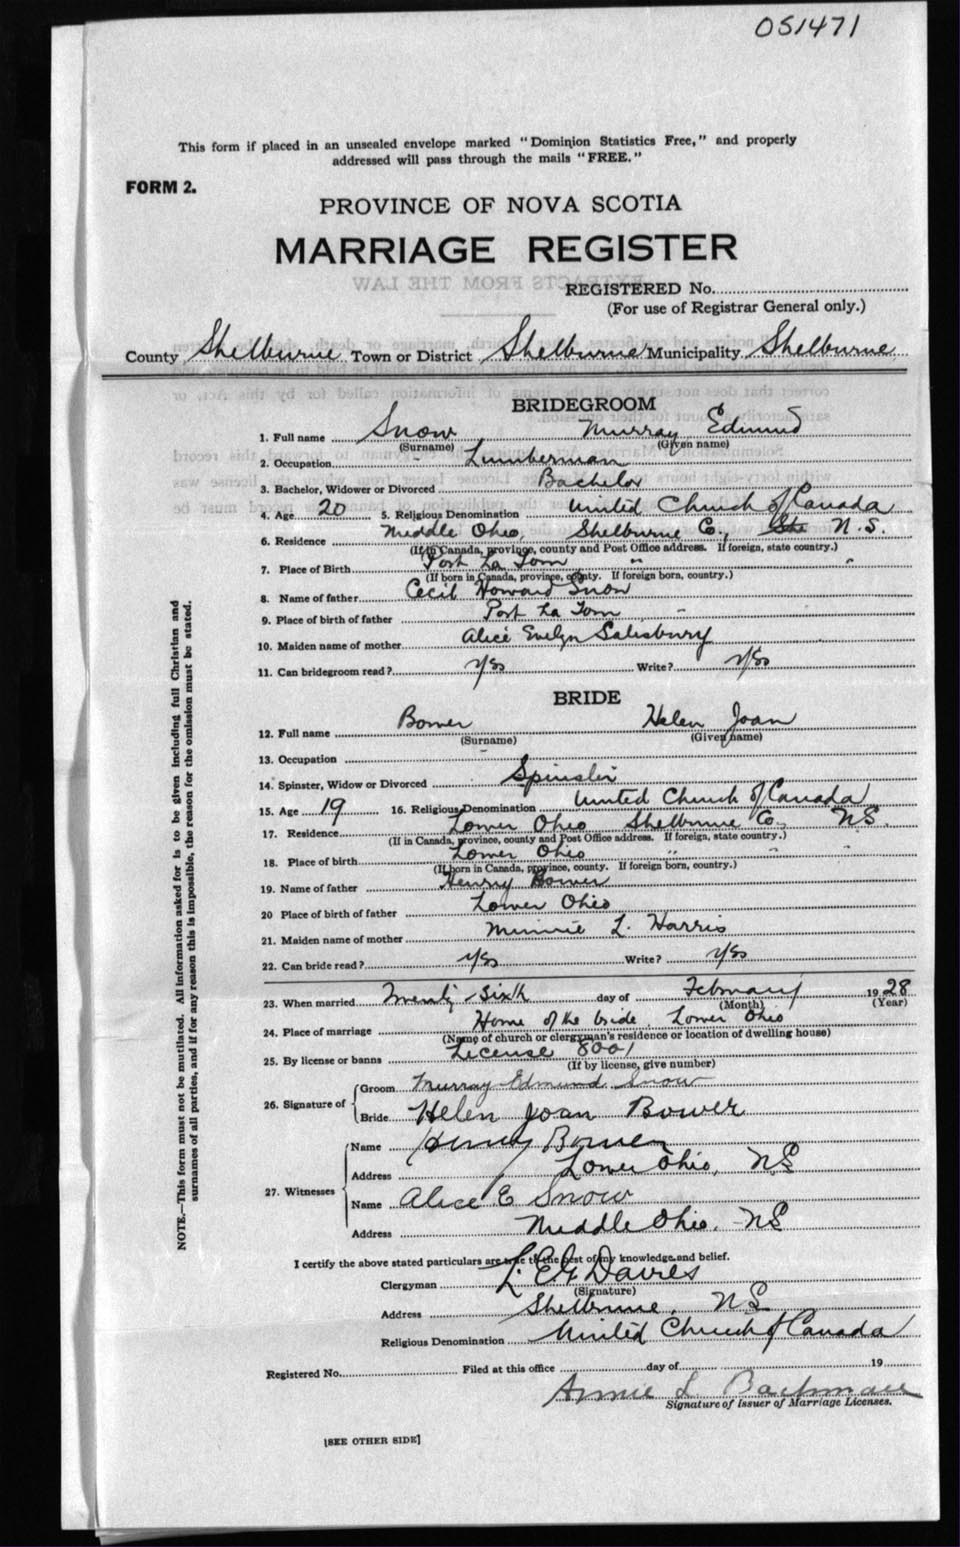 051471
This form if placed in an unsealed envelope marked "Dominion Statistics Free," and properly
addressed will pass through the mails "FREE."
FORM 2.
PROVINCE OF NOVA SCOTIA
MARRIAGE REGISTER
REGISTERED No.
(For use of Registrar General only.)
County Shelburne Town or District Shelburne Municipality Shelburne
BRIDEGROOM
1. Full name Snow Murray Edmund
(Surname) (Given name)
2. Occupation Lumberman
3. Bachelor, Widower or Divorced Bachelor
4. Age 20 5. Religious Denomination United Church of Canada
6. Residence Middle Ohio, Shelburne Co., N.S.
(If in Canada, province, county and Post Office address. If foreign, state country.)
7. Place of Birth Port La Tour " "
(If born in Canada, province, county. If foreign born, country.)
8. Name of father Cecil Howard Snow
9. Place of birth of father Port La Tour
10. Maiden name of mother Alice Evelyn Salisbury
11. Can bridegroom read? Yes Write? Yes
BRIDE
12. Full name Bower Helen Joan
(Surname) (Given name)
13. Occupation
14. Spinster, Widow or Divorced Spinster
15. Age 19 16. Religious Denomination United Church of Canada
17. Residence Lower Ohio Shelburne Co., N.S.
(If in Canada, province, county and Post Office address. If foreign, state country.)
18. Place of birth Lower Ohio " " "
(If born in Canada, province, county. If foreign born, country.)
19. Name of father Henry Bower
20 Place of birth of father Lower Ohio
21. Maiden name of mother Minnie L. Harris
22. Can bride read? Yes Write? Yes
23. When married Twenty-sixth day of February 1928
(Month) (Year)
24. Place of marriage Home of the bride, Lower Ohio
(Name of church or clergyman's residence or location of dwelling house)
25. By license or banns License 8001
(If by license, give number)
26. Signature of Groom Murray Edmund Snow
Bride Helen Joan Bower
27. Witnesses Name Henry Bower
Address Lower Ohio, N.S.
Name Alice E Snow
Address Middle Ohio, N.S.
I certify the above stated particulars are true to the best of my knowledge and belief.
Clergyman L. E. G. Davies
(Signature)
Address Shelburne, N.S.
Religious Denomination United Church of Canada
Registered No. Filed at this office day of 19
Annie L Bachman
Signature of Issuer of Marriage Licenses.
[SEE OTHER SIDE]
NOTE.—This form must not be mutilated. All information asked for is to be given including full Christian and
surnames of all parties, and if for any reason this is impossible, the reason for the omission must be stated.